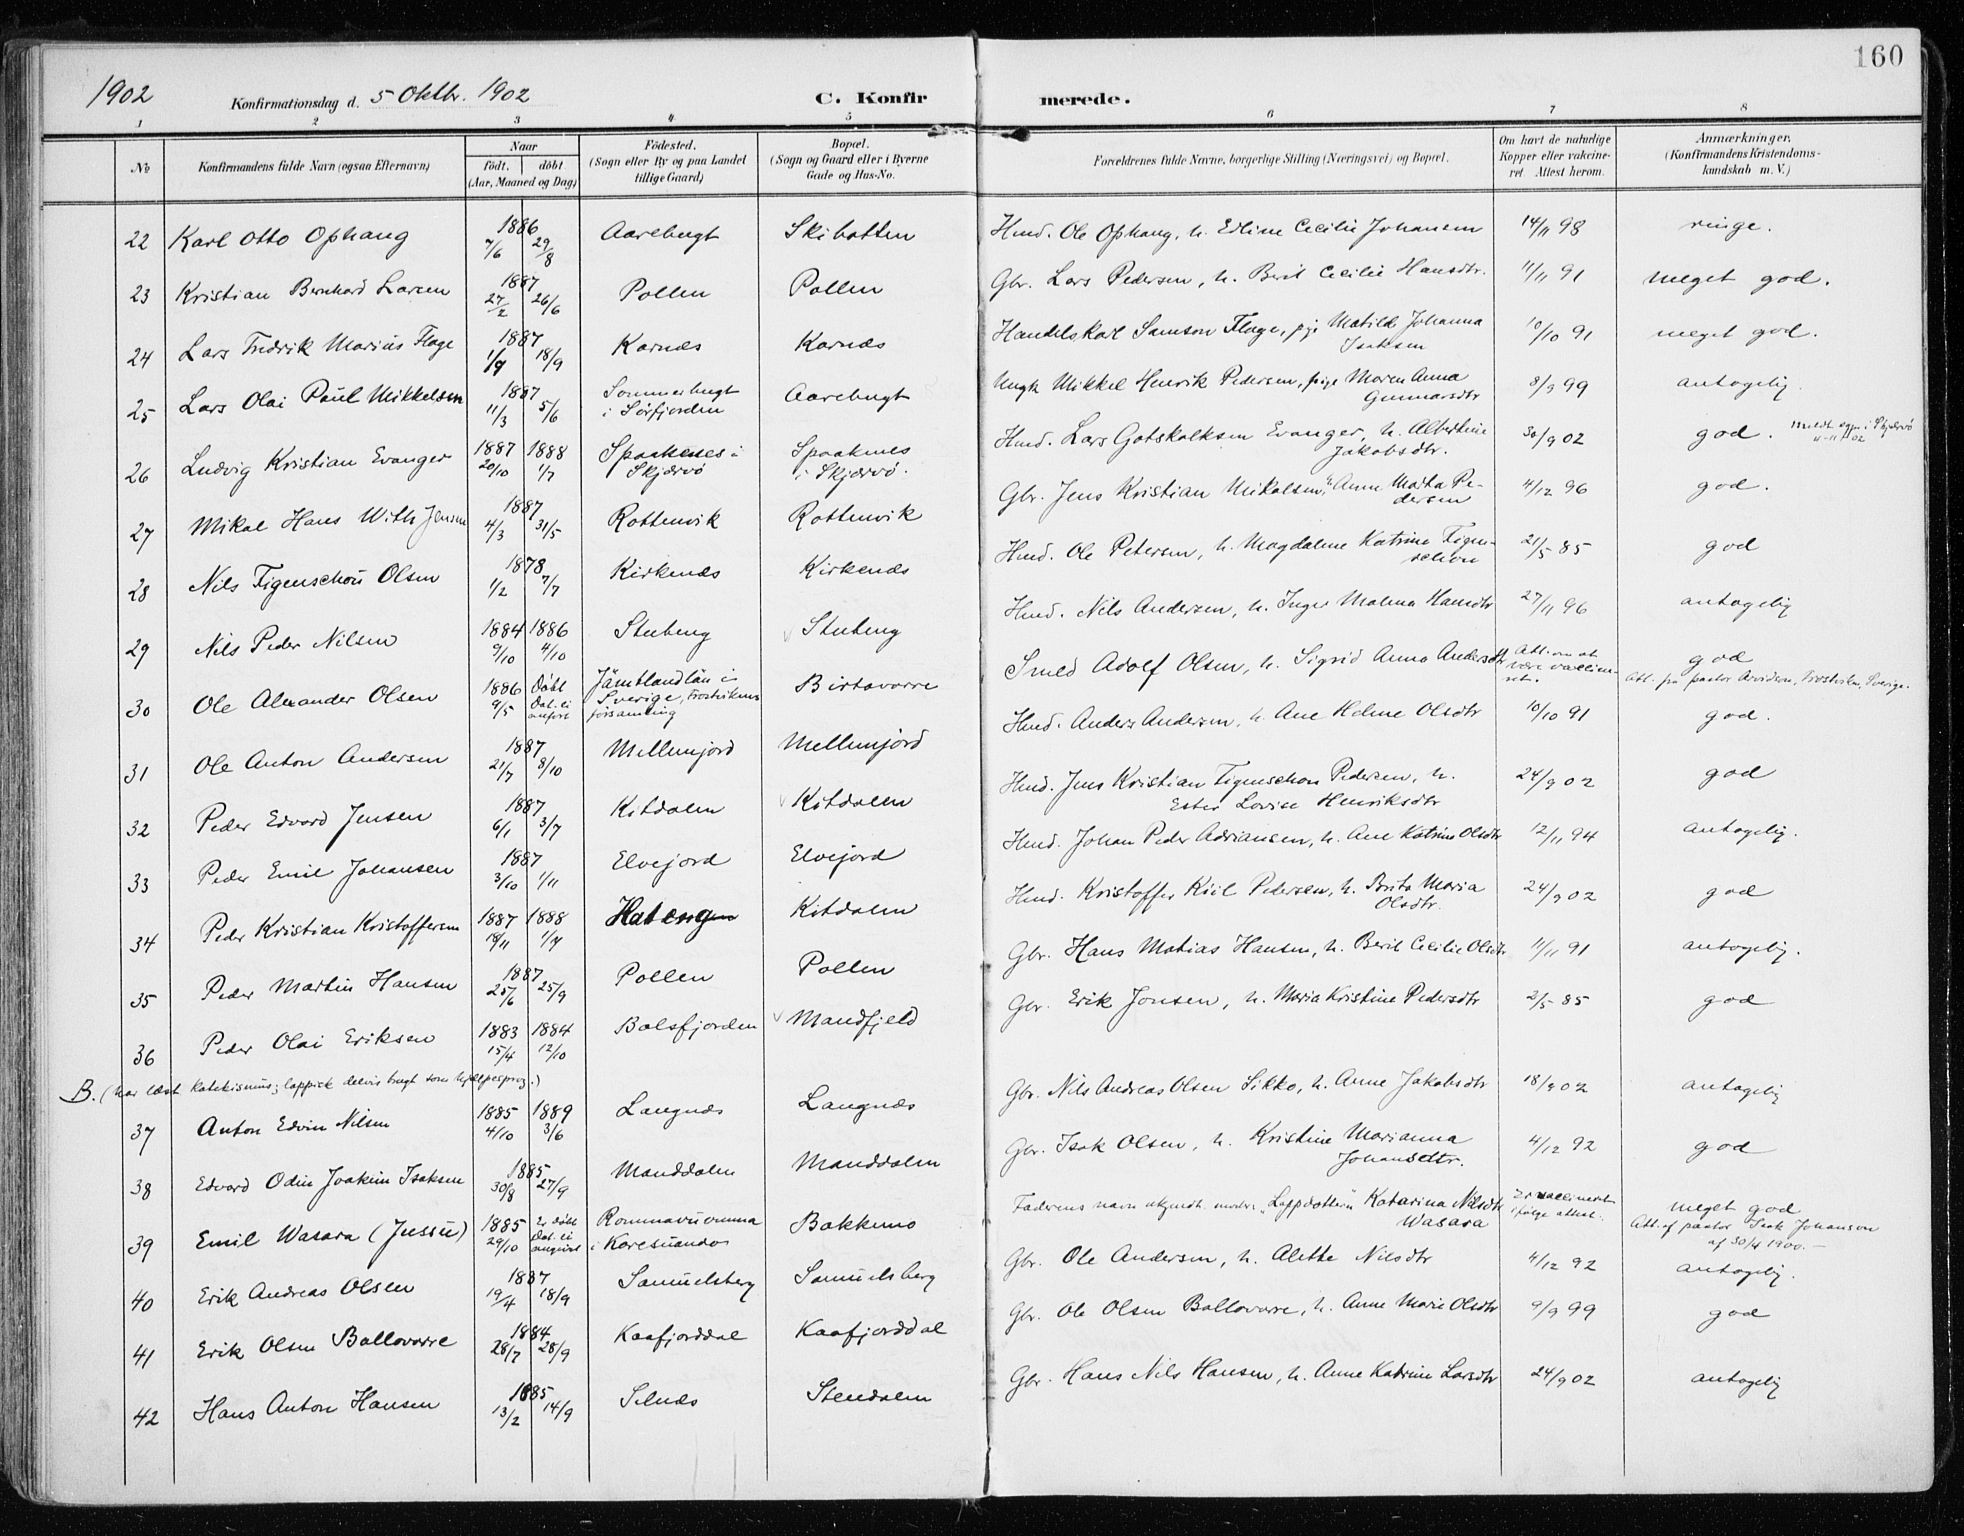 160
1902 Konfirmationsdag d. 5 Oktbr. 1902 C. Konfirmerede.
1 2 3 4 5 6 7 8
No Konfirmandens fulde Navn (ogsaa Efternavn) Naar født. døbt (Aar, Maaned og Dag) Fødested. (Sogn eller By og paa Landet tillige Gaard) Bopæl. (Sogn og Gaard eller i Byerne Gade og Hus-No. Forældrenes fulde Navne, borgerlige Stilling (Næringsvei) og Bopæl. Om havt de naturlige Kopper eller vakcineret. Attest herom. Anmærkninger. (Konfirmandens Kristendomskundskab m. V.)
22 Karl Otto Ophaug 1886 7/6 29/8 Aarebugt Skibotten Hmd. Ole Ophaug, h. Edline Cecilie Johansen 14/11 98 ringe.
23 Kristian Bernhard Larsen 1887 27/2 26/6 Pollen Pollen Gbr. Lars Pedersen, h. Berit Cecilie Hansdtr. 11/11 91 meget god.
24 Lars Fredrik Marius Flage 1887 1/9 18/9 Karnæs Karnæs Handelskarl Samson Flage, pige Matilde Johanna Isaksen 10/10 91 meget god.
25 Lars Olai Paul Mikkelsen 1887 11/3 5/6 Sommerbugt i Sørfjorden Aarebugt Ungk. Mikkel Henrik Pedersen, pige Maren Anna Gunnarsdtr 8/9 99 antagelig.
26 Ludvig Kristian Evanger 1887 20/10 1888 1/7 Spaaknes i Skjærvø Spaaknes i Skjærvø. Hmd. Lars Gotskalksen Evanger, h. Albertine Jakobsdtr. 30/9 02 god. meldt sgpr. i Skjærvø 11-11 02
27 Mikal Hans With Jensen 1887 4/3 31/5 Rottenvik Rottenvik Gbr. Jens Kristian Mikalsen, h. Anne Marta Pedersen 4/12 96 god.
28 Nils Figenschou Olsen 1878 1/2 7/7 Kirkenæs Kirkenæs Hmd. Ole Petersen, h. Magdalene Katrine Figenschou 21/5 85 god
29 Nils Peder Nilsen 1884 9/10 1886 4/10 Stubeng Stubeng Hmd. Nils Andersen, h. Inger Malena Hansdtr 27/11 96 antagelig
30 Ole Alexander Olsen 1886 9/5 Døbt Dat. ei anført Jämtlandlän i Sverige, Frostvikens församling Birtavarre Smed Adolf Olsen, h. Sigrid Anna Andersdtr Att. om at være vakcineret. god Att. fra pastor Arvidson, Frostviken, Sverige.
31 Ole Anton Andersen 1887 21/7 8/10 Mellemjord Mellemjord Hmd. Anders Andersen, h. Ane Helene Olsdtr 10/10 91 god.
32 Peder Edvard Jensen 1887 6/1 3/7 Kitdalen Kitdalen Hmd. Jens Kristian Figenschou Pedersen, h. Ester Lovise Henriksdtr 24/9 02 god
33 Peder Emil Johansen 1887 3/10 1/11 Elvejord Elvejord Hmd. Johan Peder Adriansen, h. Ane Katrine Olsdtr 12/11 94 antagelig.
34 Peder Kristian Kristoffersen 1887 19/11 1888 1/7 Hatengen Kitdalen Hmd. Kristoffer Kiil Pedersen, h. Brita Maria Olsdtr. 24/9 02 god
35 Peder Martin Hansen 1887 25/6 25/9 Pollen Pollen Gbr. Hans Matias Hansen, h. Berit Cecilie Olsdtr 11/11 91 antagelig.
36 Peder Olai Eriksen 1883 15/4 1884 12/10 Balsfjorden Mandfjeld Gbr. Erik Jonsen, h. Maria Kristine Pedersdtr 2/5 85 god
B. (har læst katekismus; lappisk delvis brugt som hjælpesprog.)
37 Anton Edvin Nilsen 1885 4/10 1889 3/6 Langnæs Langnæs Gbr. Nils Andreas Olsen Sikko, h. Anne Jakobsdtr 18/9 02 antagelig
38 Edvard Odin Joakim Isaksen 1885 30/8 27/9 Manddalen Manddalen Gbr. Isak Olsen, h. Kristine Marianna Johansdtr. 4/12 92 god
39 Emil Wasara (Jussu) 1885 29/10 Er døbt Dat. ei angivet Rommavuomma i Karesuando Bakkemo Faderens navn ukjendt. moder: "Lappdottern" Katarina Nilsdtr Wasara Er vakcineret ifølge attest. meget god Att. af pastor Isak Johanson af 30/4 1900.—
40 Erik Andreas Olsen 1887 19/4 18/9 Samuelsberg Samuelsberg Gbr. Ole Andersen, h. Alette Nilsdtr 4/12 92 antagelig.
41 Erik Olsen Ballovarre 1884 28/7 28/9 Kaafjorddal Kaafjorddal Gbr. Ole Olsen Ballovarre, h. Anne Marie Olsdtr 9/9 99 god
42 Hans Anton Hansen 1885 13/2 14/9 Selnæs Stendalen Gbr. Hans Nils Hansen, h. Anne Katrine Larsdtr 24/9 02 antagelig